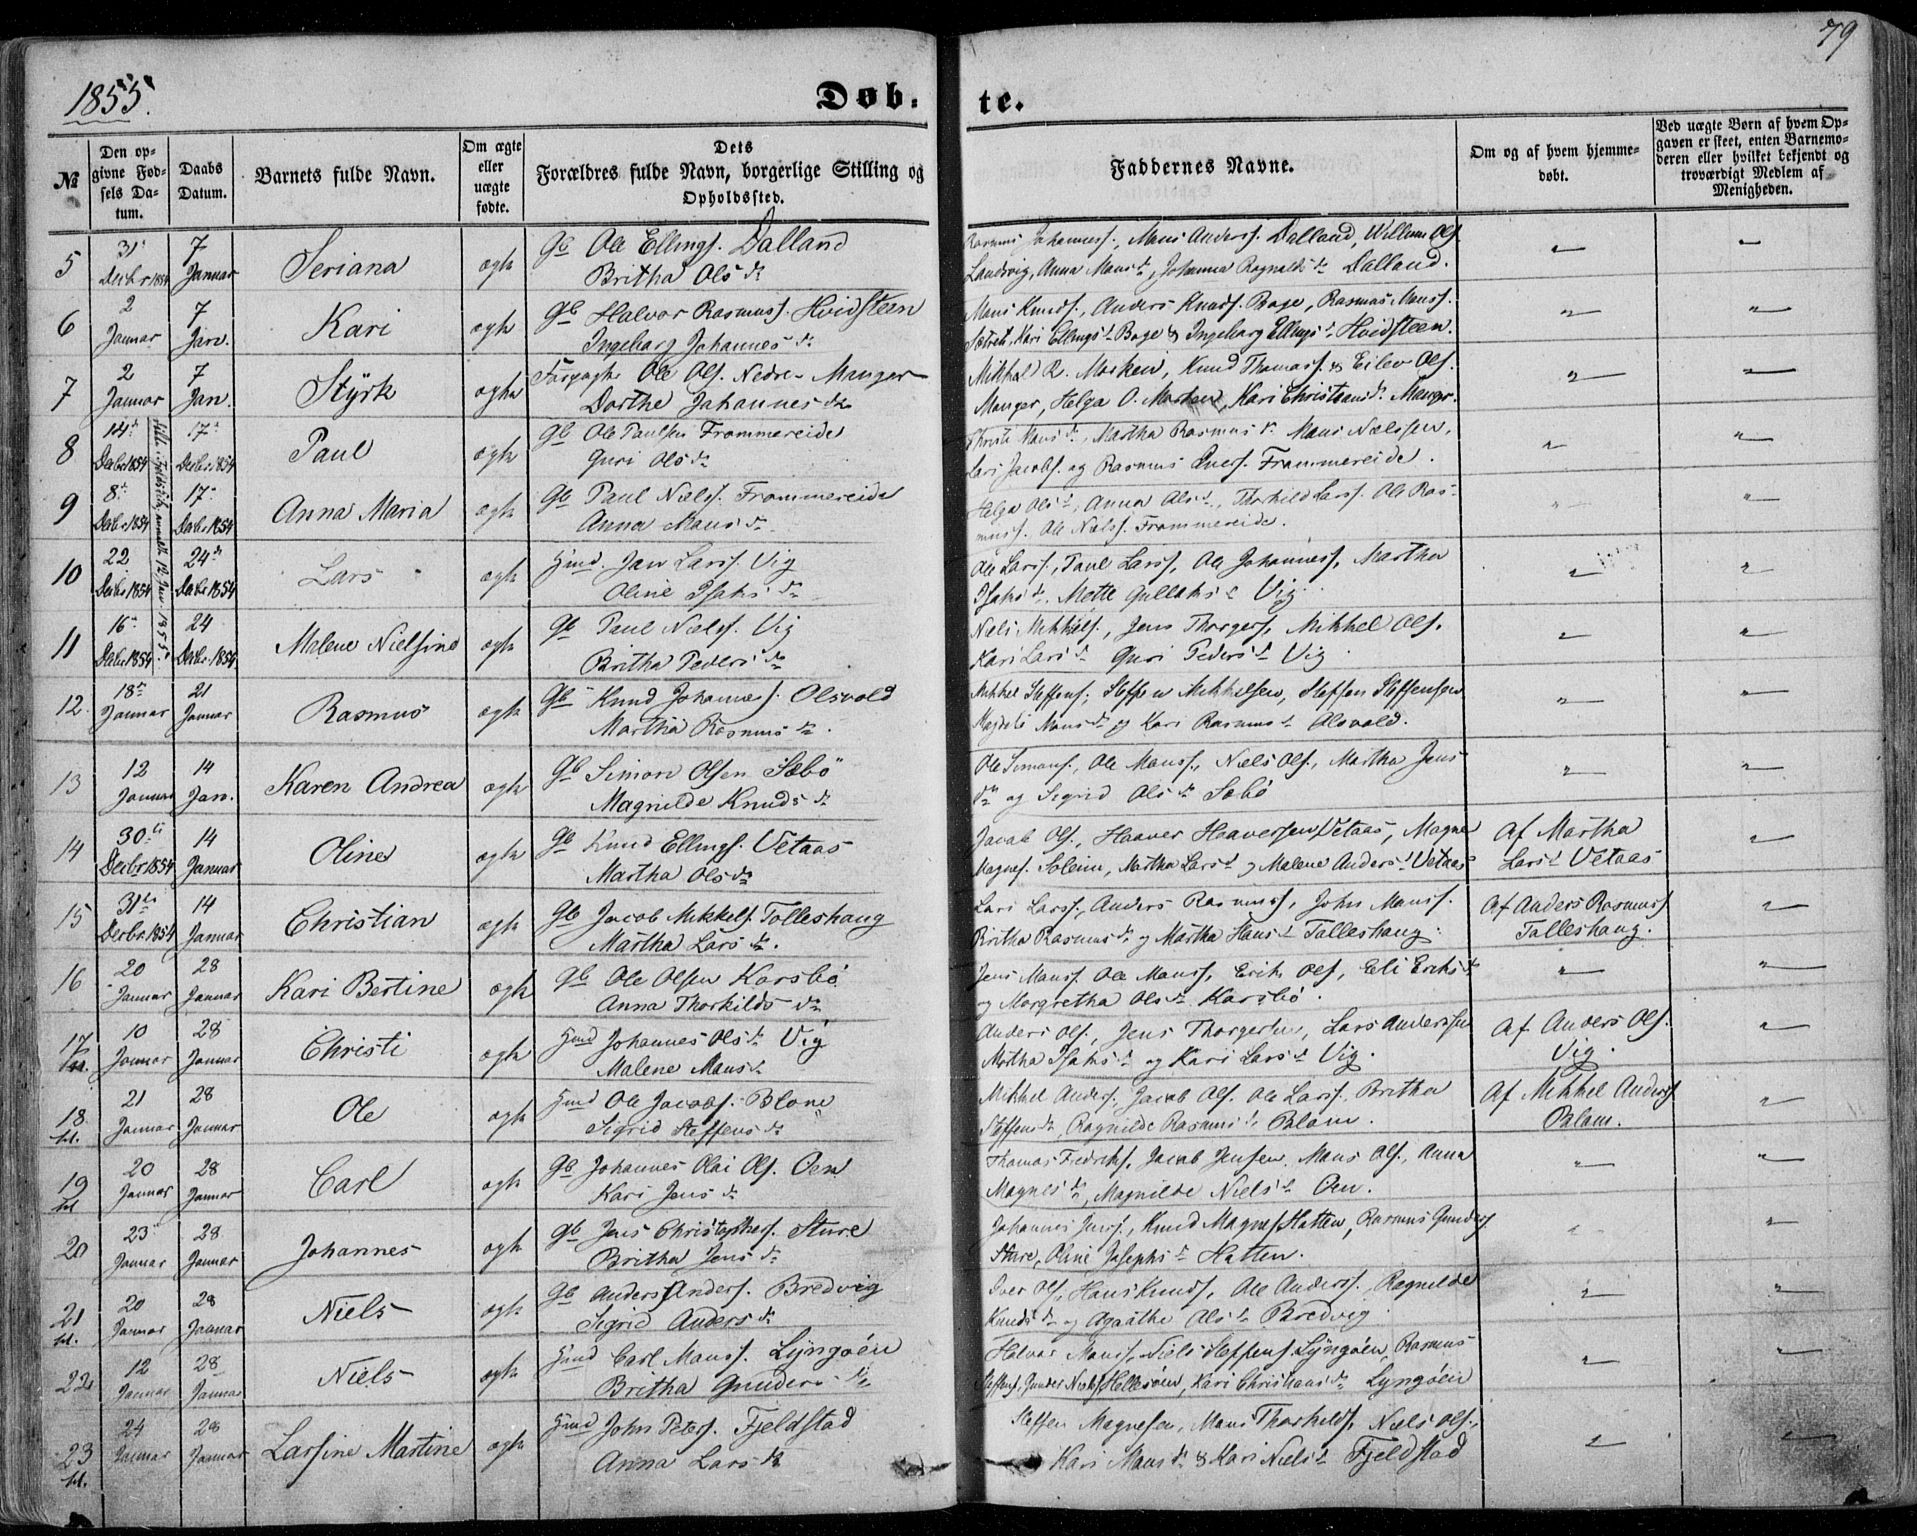 79
1855.
Døb-
te.
№
Den op-
givne Fød-
sels Da-
tum.
Daabs
Datum.
Barnets fulde Navn.
Om ægte
eller
uægte
fødte.
Dets
Forældres fulde Navn, borgerlige Stilling og
Opholdssted.
Faddernes Navne.
Om og af hvem hjemme-
døbt.
Ved uægte Børn af hvem Op-
gaven er skeet, enten Barnemo-
deren eller hvilket bekjendt og
troværdigt Medlem af
Menigheden.
5
31
Decbr 1854
7
Januar
Seriana
ægte
Gb Ole Ellings. Dalland
Britha Ols dr
Rasmus Johanness., Mons Anders. Dalland, Willum Ols.
Landsvig, Anna Mons dr, Johanna Ragnalds dr Dalland.
6
2
Januar
7
Jan.
Kari
ægte
Gb Halvor Rasmuss. Hvidsteen
Ingeborg Johannes dr
Mons Knuds., Anders Knuds. Boge, Rasmus Monss.
Kari Ellings d Boge & Ingeborg Ellings d Hvidsteen.
7
2
Januar
7
Jan.
Styrk
ægte
Ole Ols. Nedre-Manger
Dorthe Johannes dr
Mikkel R. Morken, Knud Thomass. & Eilev Ols.
Manger, Helga O. Morken, Kari Christians d. Manger.
8
14
Decbr 1854
17
Decbr 1854
Paul
ægte
Gb Ole Paulsen Frommereide
Guri Ols dr
Christi Mons dr, Martha Rasmus dr Mons Nielssen,
Lars Jacobs. og Rasmus Ivers. Frommereide.
9
8
Decbr 1854
17
Decbr 1854
Anna Maria
ægte
Gb Paul Niels. Frommereide
Anna Mons dr
Helga Ols d, Anna Ols d, Thorkild Lars. Ole Ras-
mus. Ole Niels. Frommereide.
10
22
Decbr 1854
24
Decbr 1854
Lars
ægte
Huusmd. Jan Larss. Vig
Oline Isaks dr
Ole Larss., Paul Larss, Ole Johanness, Martha
Isaks dr, Mette Gullaks d Vig.
11
16
Decbr 1854
24
Decbr 1854
Malene Nielsine
ægte
Gb Paul Niels. Vig
Britha Peders dr
Niels Mikkels., Jens Thorgers, Mikkel Ols.
Kari Lars d Guri Peders d Vig
12.
18
Januar
21
Januar
Rasmus
ægte
Gb Knud Johannes. Olsvold
Martha Rasmus dr.
Mikkel Steffens, Steffen Mikkelsen, Steffen Steffensen
Mons dr og Kari Rasmus d Olsvold.
13
12
Januar
14
Jan.
Karen Andrea
ægte
Gb Simon Olsen Sæbö
Magnilde Knuds dr
Ole Simons., Ole Monss., Niels Ols, Martha Jens
dr og Sigrid Ols dr Sæbö
14
30
Decbr 1854
14
Januar
Oline
ægte
Gb Knud Ellings. Vetaas
Martha Ols dr
Jacob Ols., Haaver Haaversen Vetaas, Magne
Magnes. Soleim, Martha Lars d og Malene Anders d Vetaas
Af Martha
Lars d Vetaas
15
31
Decbr 1854
14
Januar
Christian
ægte
Gb Jacob Mikkels. Tolleshaug
Martha Lars dr.
Lars Larss., Anders Rasmuss, John Monss.
Britha Rasmus dr og Martha Hans d Tolleshaug.
Af Anders Rasmuss
Tolleshaug.
16
20
Januar
28
Januar
Kari Bertine
ægte
Gb Ole Olsen Karsbö
Anna Thorkilds dr
Jens Monss. Ole Monss, Erik Ols, Eli Eriks d
og Margretha Ols dr Karsbö.
17
10
Januar
28
Januar
Christi
ægte
Huusmd Johannes Ols Vig
Malene Mons d
Anders Ols, Jens Thorgersen, Lars Anderssen
Martha Isaks d og Kari Lars d Vig.
Af Anders Ols.
Vig.
18
21
Januar
28
Januar
Ole
ægte
Huusmd Ole Jacobs. Blom
Sigrid Steffens dr
Mikkel Anders. Jacob Ols. Ole Larss. Britha
Steffens dr, Ragnilde Rasmus d Blom.
Af Mikkel Anders.
Blom.
19
20
Januar
28
Januar
Carl
ægte
Gb Johannes Olai Ols. Oen
Kari Jens dr
Thomas Fredriks, Jacob Jensen, Mons Ols, Anna
Magnes dr, Magnilde Niels d Oen.
20
23
Januar
28
Januar
Johannes
ægte
Gb Jens Christophers. Sture
Britha Jens dr
Johannes Jens., Knud Magnes Hatten, Rasmus Gunders
Sture, Oline Josephs d Hatten.
21
20
Januar
28
Januar
Niels
ægte
Gb Anders Anders. Bredvig
Sigrid Anders dr
Iver Ols, Hans Knuds, Ole Anders., Ragnilde
Knuds d og Agathe Ols d Bredvig
22
12
Januar
28
Januar
Niels
ægte
Huusmd Carl Monss. Lyngöen
Britha Gunders dr
Halvor Monss, Niels Steffens Lyngöen, Rasmus
Steffens, Gunder Niels Hellesöen, Kari Christians dr Lyngöen
23
24
Januar
28
Januar
Larsine Martine
ægte
Huusmd John Peters. Fjeldstad
Anna Lars dr
Steffen Magnesen, Mons Thorkilds, Niels Ols,
Kari Mons dr & Kari Niels d Fjeldstad